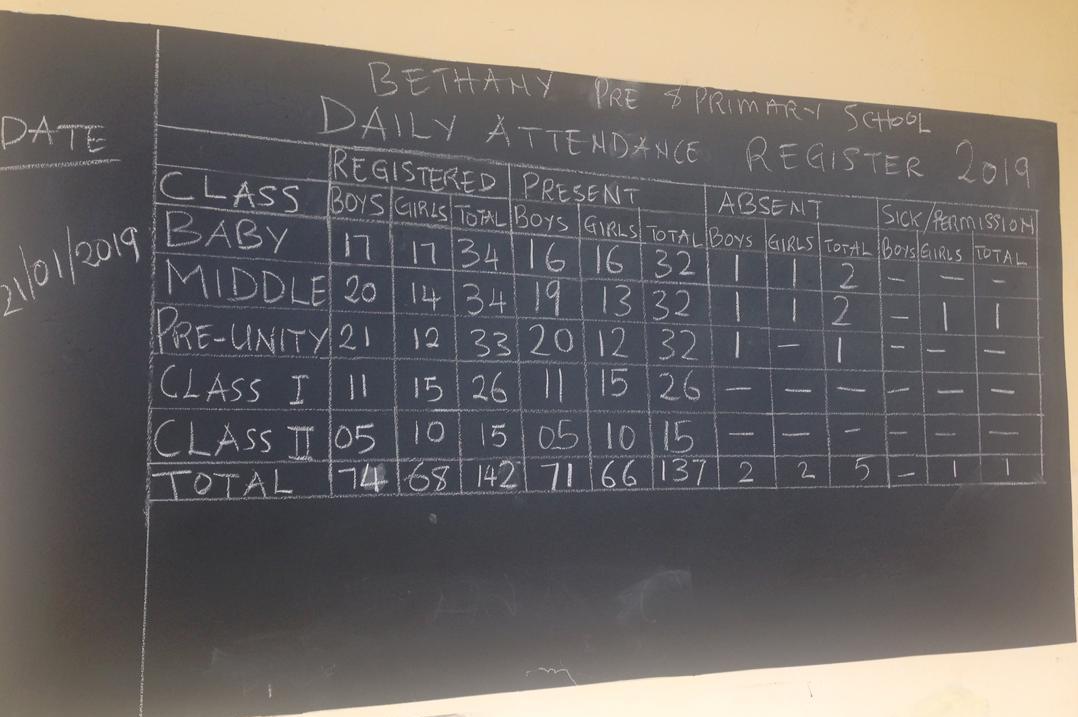 BETHANY PRE & PRIMARY SCHOOL
DAILY ATTENDANCE REGISTER 2019
DATE
21/01/2019
CLASS REGISTERED PRESENT ABSENT SICK/PERMISSION
BOYS GIRLS TOTAL BOYS GIRLS TOTAL BOYS GIRLS TOTAL BOYS GIRLS TOTAL
BABY 17 17 34 16 16 32 1 1 2 – – –
MIDDLE 20 14 34 19 13 32 1 1 2 – 1 1
PRE-UNITY 21 12 33 20 12 32 1 – 1 – – –
CLASS I 11 15 26 11 15 26 – – – – – –
CLASS II 05 10 15 05 10 15 – – – – – –
TOTAL 74 68 142 71 66 137 2 2 5 – 1 1